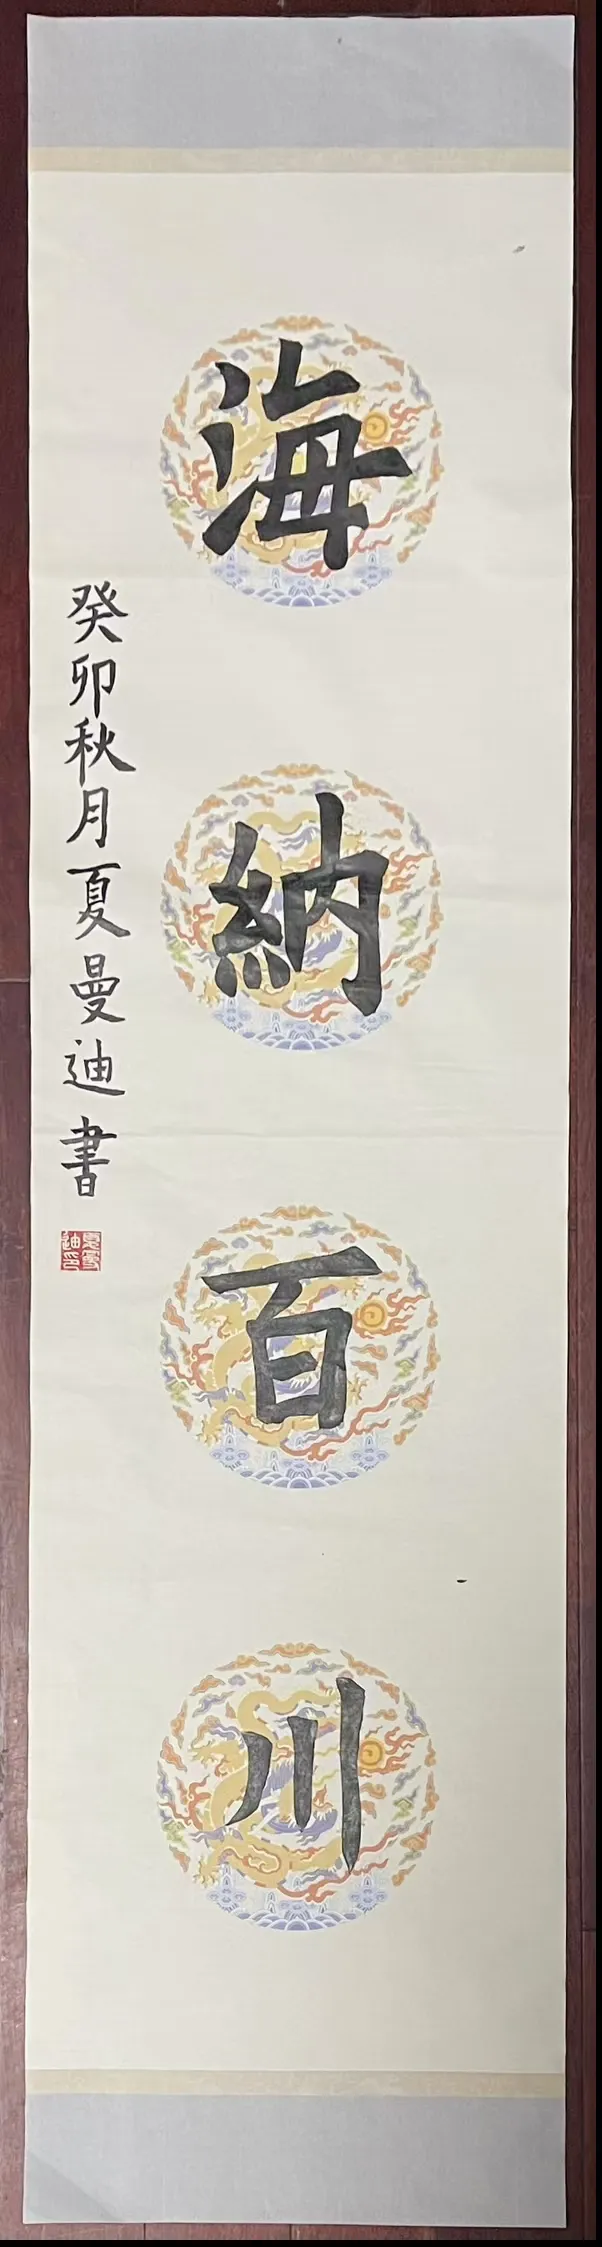 海納百川
癸卯秋月夏曼迪書
夏曼迪印